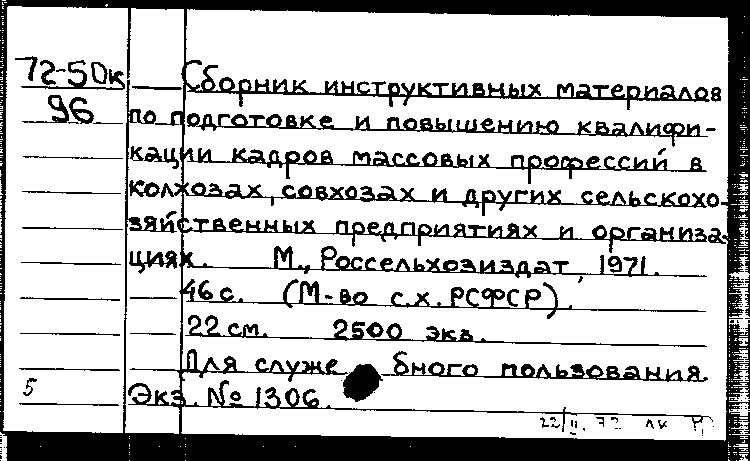 72-50к Сборник инструктивных материалов
96 по подготовке и повышению квалифи-
кации кадров массовых профессий в
колхозах, совхозах и других сельскохо-
зяйственных предприятиях и организа-
циях. М., Россельхозиздат, 1971.
46 с. (М-во с.х. РСФСР).
22 см. 2500 экз.
Для служебного пользования
5 Экз. № 1306.
22/II. 72 лк